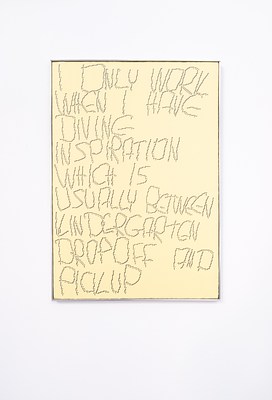 I ONLY WORK
WHEN I HAVE
DIVINE
INSPIRATION
WHICH IS
USUALLY BETWEEN
KINDERGARTEN
DROPOFF AND
PICKUP